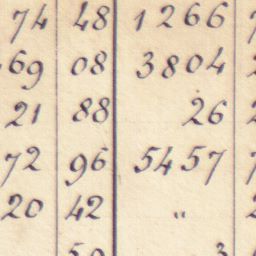 74 48 1266
69 08 3804
21 88 26
72 96 5457
20 42 "